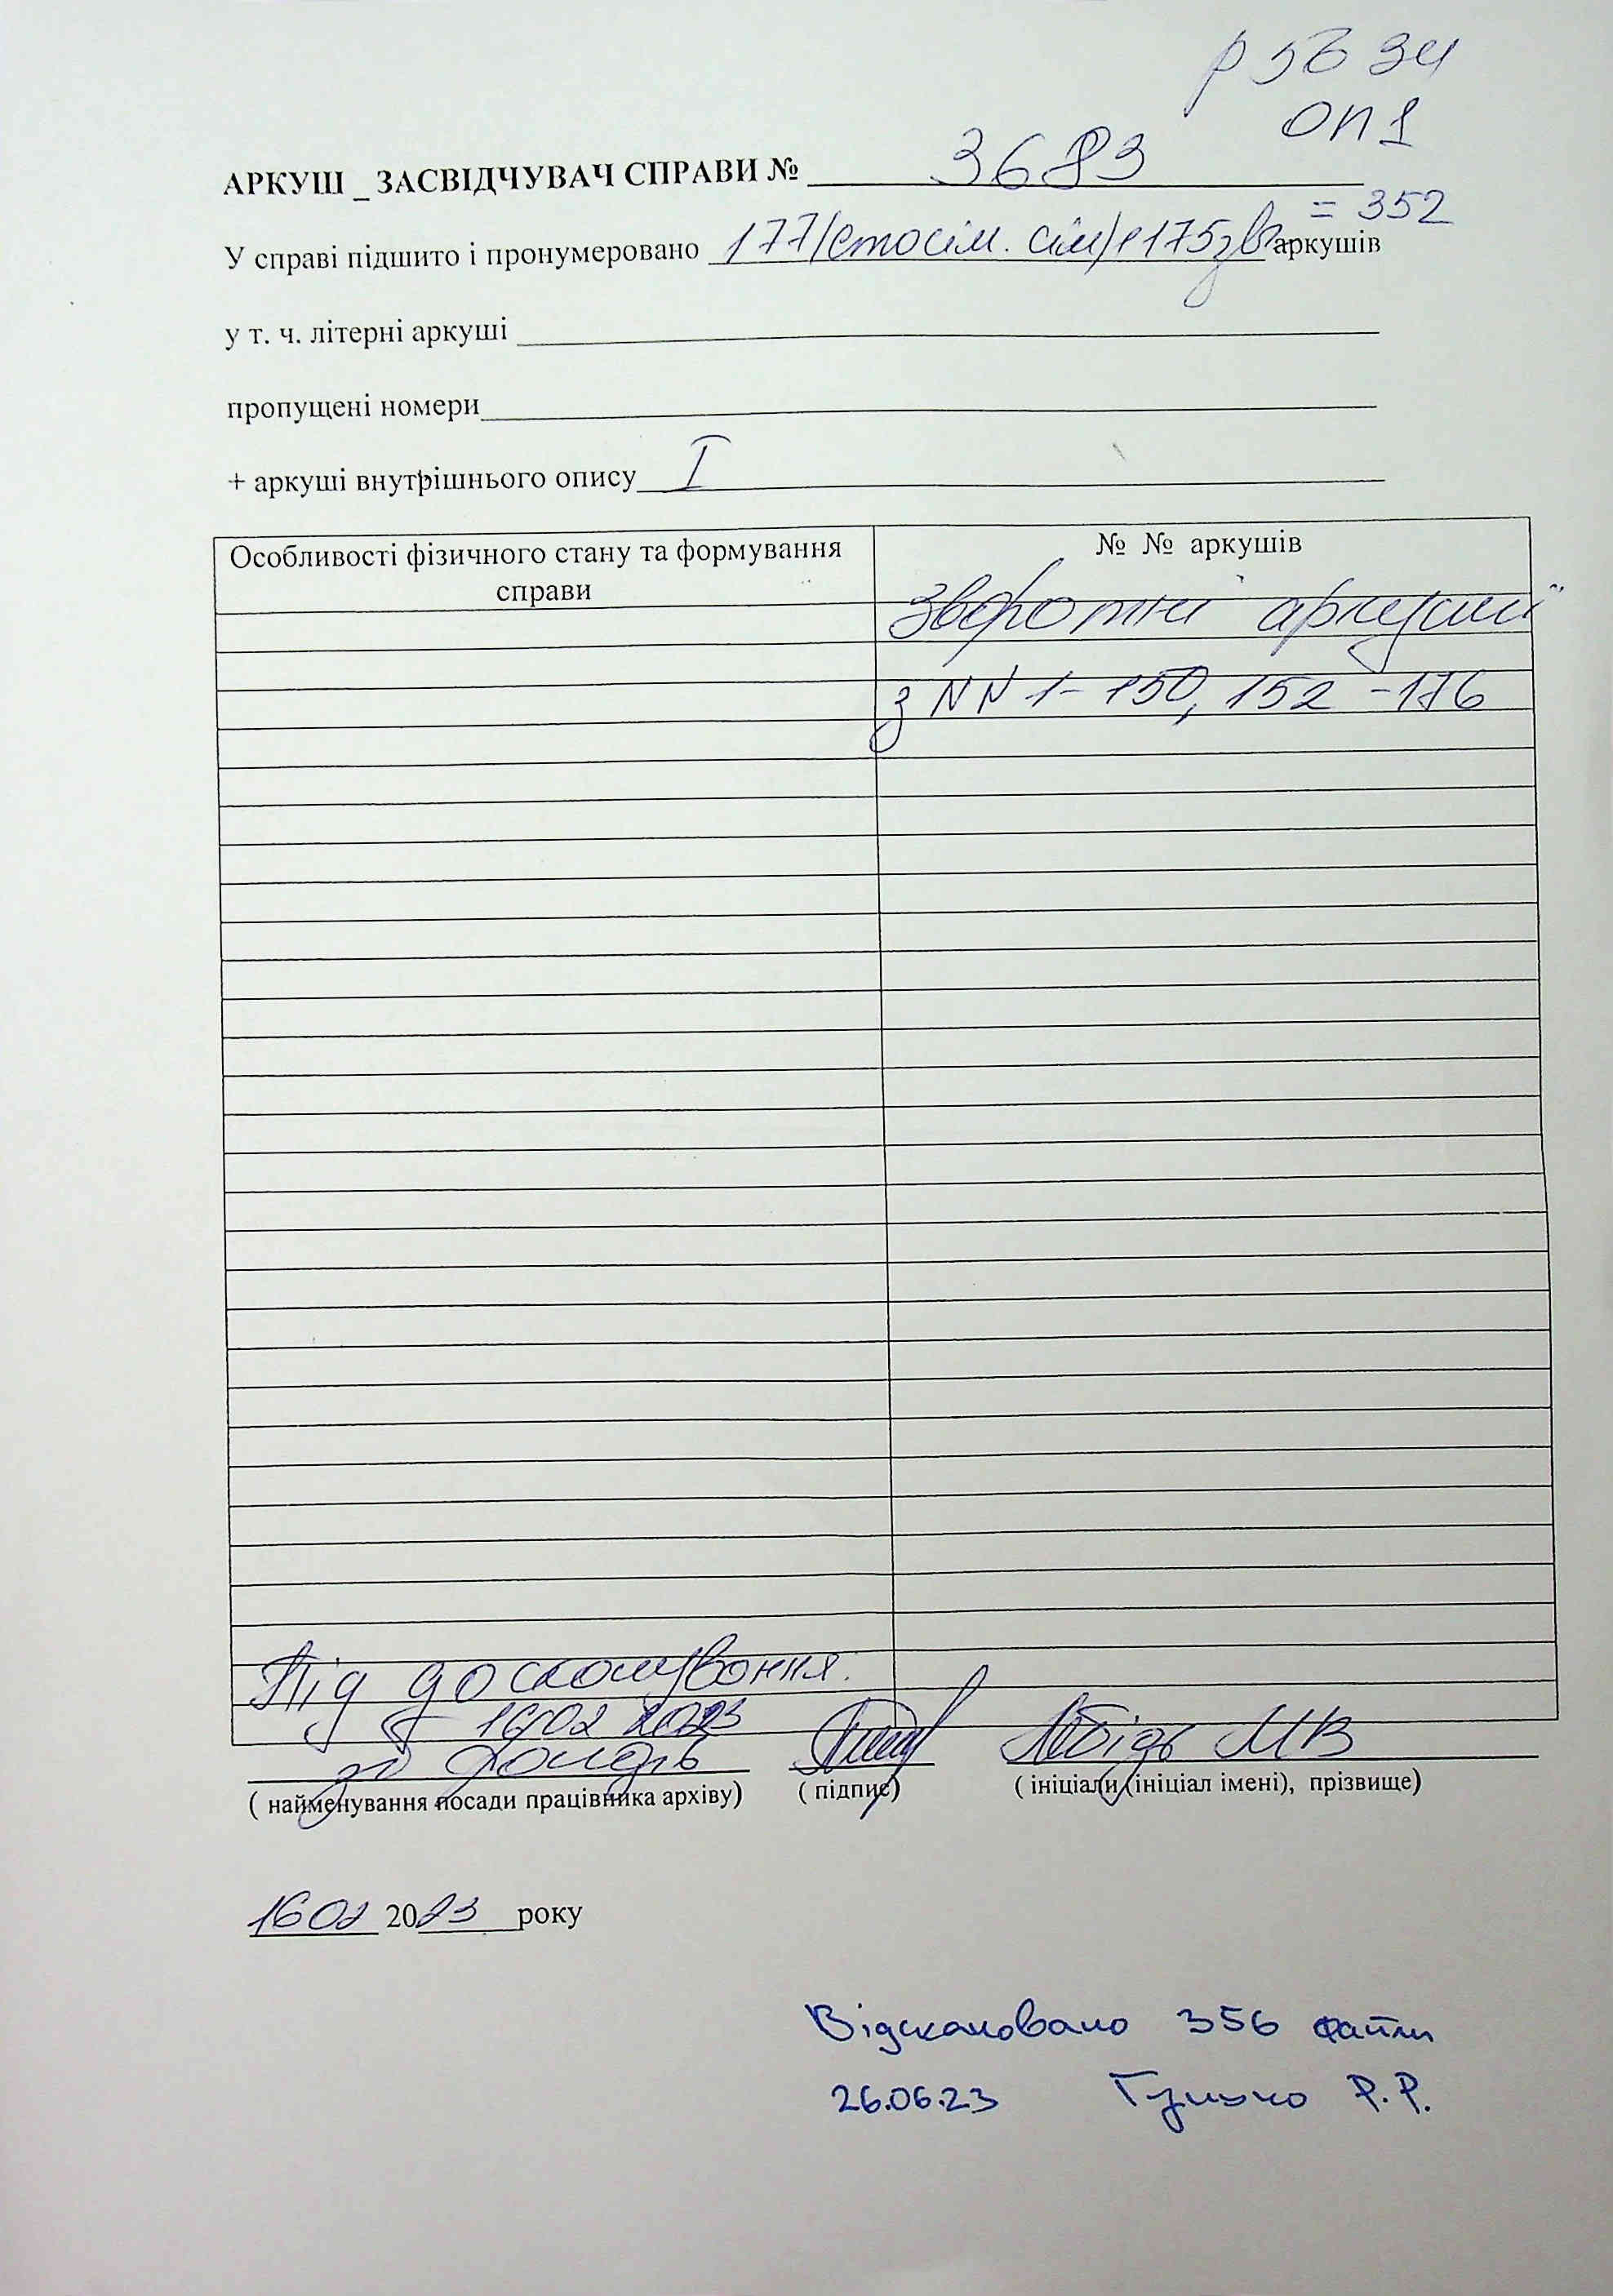 р 5В 34
оп 1
АРКУШ _ ЗАСВІДЧУВАЧ СПРАВИ № 3683
= 352
У справі підшито і пронумеровано 177/стосім. сім/+175зв. аркушів
у т. ч. літерні аркуші
пропущені номери
+ аркуші внутрішнього опису I
Особливості фізичного стану та формування справи
№ № аркушів
Зворотні аркуші
з NN 1-150, 152-176
Під до сканування.
16 02 2023
( найменування посади працівника архіву) ( підпис) ( ініціали (ініціал імені), прізвище)
МВ
16 02 2023 року
Відскановано 356 файли
26.06.23 Р.Р.